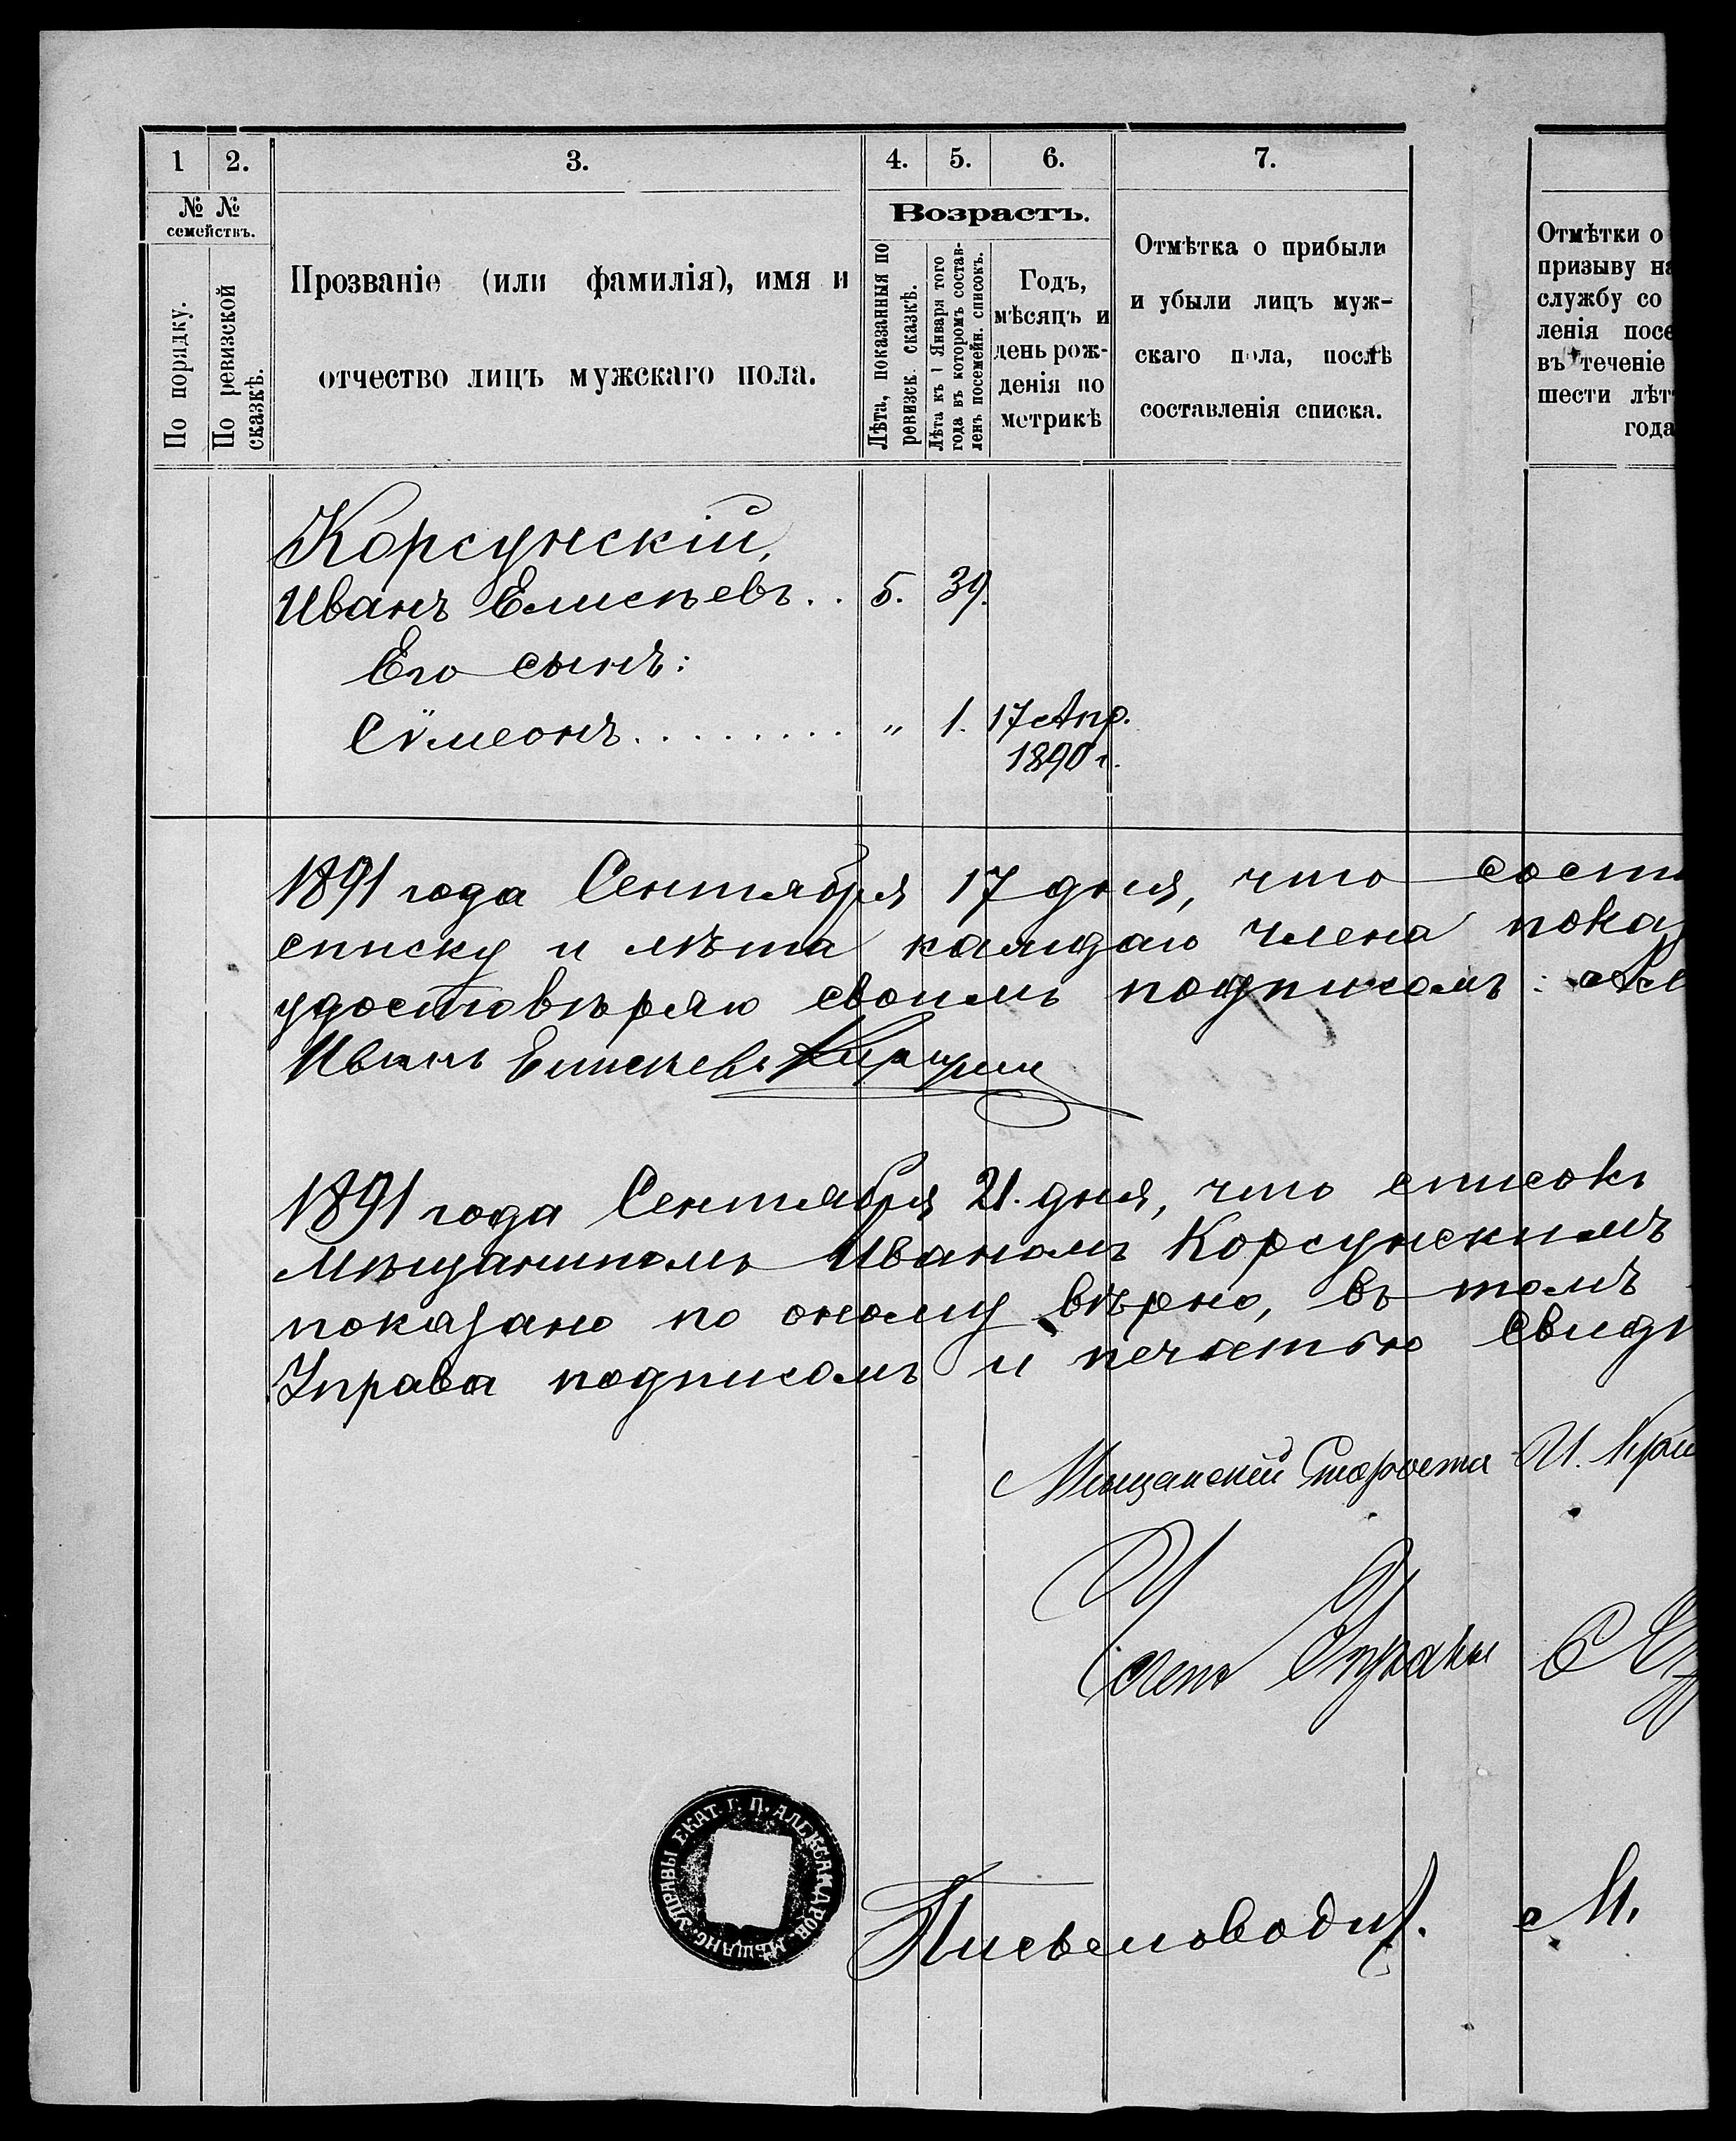 1 2. 3. 4. 5. 6. 7.
№ №
семействъ.
По порядку.
По ревизской
сказкѣ.
Прозваніе (или фамилія), имя и
отчество лицъ мужскаго пола.
Возрастъ.
Лѣта, показанныя по
ревизск. сказкѣ.
Лѣта къ 1 Января того
года въ которомъ состав-
ленъ посемейн. списокъ.
Годъ,
мѣсяцъ и
день рож-
денія по
метрикѣ
Отмѣтка о прибыли
и убыли лицъ муж-
скаго пола, послѣ
составленія списка.
Отмѣтки о
призыву на
службу со
ленія посе
въ теченіе
шести лѣт
года
Корсунскій,
Иванъ Елисѣевъ . . 5. 39.
Его сынъ:
Сѵмеонъ . . . . . . . . . „ 1. 17 Апр.
1890 г.
1891 года Сентября 17 дня, что сост
списку и лѣта каждаго члена показ
удостовѣряю своимъ подписомъ:
Иванъ Елисѣевъ
1891 года Сентября 21. дня, что списокъ
Мѣщаниномъ Иваномъ Корсунскимъ
показано по оному вѣрно, въ томъ
Управа подписомъ и печатью свидѣ
Мѣщанскій Староста И. Кра
Членъ Управы С
ЕКАТ. Г. П. АЛЕКСАНДРОВ. МѢЩАНС. УПРАВЫ
Письмоводит. М.